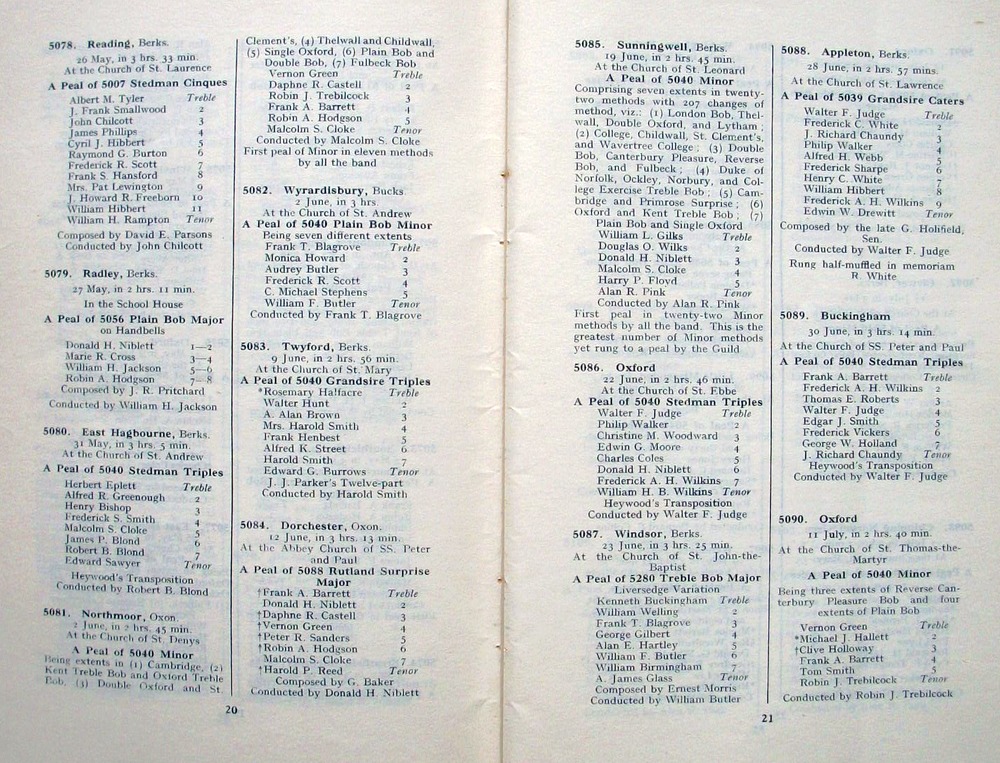 5078. Reading, Berks.
26 May, in 3 hrs. 33 min.
At the Church of St. Laurence
A Peal of 5007 Stedman Cinques
Albert M. Tyler Treble
J. Frank Smallwood 2
John Chilcott 3
James Phillips 4
Cyril J. Hibbert 5
Raymond G. Burton 6
Frederick R. Scott 7
Frank S. Hansford 8
Mrs. Pat Lewington 9
J. Howard R. Freeborn 10
William Hibbert 11
William H. Rampton Tenor
Composed by David E. Parsons
Conducted by John Chilcott
5079. Radley, Berks.
27 May, in 2 hrs. 11 min.
In the School House
A Peal of 5056 Plain Bob Major
on Handbells
Donald H. Niblett 1—2
Marie R. Cross 3—4
William H. Jackson 5—6
Robin A. Hodgson 7—8
Composed by J. R. Pritchard
Conducted by William H. Jackson
5080. East Hagbourne, Berks.
31 May, in 3 hrs. 5 min.
At the Church of St. Andrew
A Peal of 5040 Stedman Triples
Herbert Eplett Treble
Alfred R. Greenough 2
Henry Bishop 3
Frederick S. Smith 4
Malcolm S. Cloke 5
James P. Blond 6
Robert B. Blond 7
Edward Sawyer Tenor
Heywood's Transposition
Conducted by Robert B. Blond
5081. Northmoor, Oxon.
2 June, in 2 hrs. 45 min.
At the Church of St. Denys
A Peal of 5040 Minor
Being extents in (1) Cambridge, (2)
Kent Treble Bob and Oxford Treble
Bob, (3) Double Oxford and St.
Clement's, (4) Thelwall and Childwall,
(5) Single Oxford, (6) Plain Bob and
Double Bob, (7) Fulbeck Bob
Vernon Green Treble
Daphne R. Castell 2
Robin J. Trebilcock 3
Frank A. Barrett 4
Robin A. Hodgson 5
Malcolm S. Cloke Tenor
Conducted by Malcolm S. Cloke
First peal of Minor in eleven methods
by all the band
5082. Wyrardisbury, Bucks.
2 June, in 3 hrs.
At the Church of St. Andrew
A Peal of 5040 Plain Bob Minor
Being seven different extents
Frank T. Blagrove Treble
Monica Howard 2
Audrey Butler 3
Frederick R. Scott 4
C. Michael Stephens 5
William F. Butler Tenor
Conducted by Frank T. Blagrove
5083. Twyford, Berks.
9 June, in 2 hrs. 56 min.
At the Church of St. Mary
A Peal of 5040 Grandsire Triples
*Rosemary Halfacre Treble
Walter Hunt 2
A. Alan Brown 3
Mrs. Harold Smith 4
Frank Henbest 5
Alfred K. Street 6
Harold Smith 7
Edward G. Burrows Tenor
J. J. Parker's Twelve-part
Conducted by Harold Smith
5084. Dorchester, Oxon.
12 June, in 3 hrs. 13 min.
At the Abbey Church of SS. Peter
and Paul
A Peal of 5088 Rutland Surprise
Major
†Frank A. Barrett Treble
Donald H. Niblett 2
†Daphne R. Castell 3
†Vernon Green 4
†Peter R. Sanders 5
†Robin A. Hodgson 6
Malcolm S. Cloke 7
†Harold P. Reed Tenor
Composed by G. Baker
Conducted by Donald H. Niblett
20
5085. Sunningwell, Berks.
19 June, in 2 hrs. 45 min.
At the Church of St. Leonard
A Peal of 5040 Minor
Comprising seven extents in twenty-
two methods with 207 changes of
method, viz.: (1) London Bob, Thel-
wall, Double Oxford, and Lytham;
(2) College, Childwall, St. Clement's,
and Wavertree College; (3) Double
Bob, Canterbury Pleasure, Reverse
Bob, and Fulbeck; (4) Duke of
Norfolk, Ockley, Norbury, and Col-
lege Exercise Treble Bob; (5) Cam-
bridge and Primrose Surprise; (6)
Oxford and Kent Treble Bob; (7)
Plain Bob and Single Oxford
William L. Gilks Treble
Douglas O. Wilks 2
Donald H. Niblett 3
Malcolm S. Cloke 4
Harry P. Floyd 5
Alan R. Pink Tenor
Conducted by Alan R. Pink
First peal in twenty-two Minor
methods by all the band. This is the
greatest number of Minor methods
yet rung to a peal by the Guild
5086. Oxford
22 June, in 2 hrs. 46 min.
At the Church of St. Ebbe
A Peal of 5040 Stedman Triples
Walter F. Judge Treble
Philip Walker 2
Christine M. Woodward 3
Edwin G. Moore 4
Charles Coles 5
Donald H. Niblett 6
Frederick A. H. Wilkins 7
William H. B. Wilkins Tenor
Heywood's Transposition
Conducted by Walter F. Judge
5087. Windsor, Berks.
23 June, in 3 hrs. 25 min.
At the Church of St. John-the-
Baptist
A Peal of 5280 Treble Bob Major
Liversedge Variation
Kenneth Buckingham Treble
William Welling 2
Frank T. Blagrove 3
George Gilbert 4
Alan E. Hartley 5
William F. Butler 6
William Birmingham 7
A. James Glass Tenor
Composed by Ernest Morris
Conducted by William Butler
5088. Appleton, Berks.
28 June, in 2 hrs. 57 mins.
At the Church of St. Lawrence
A Peal of 5039 Grandsire Caters
Walter F. Judge Treble
Frederick C. White 2
J. Richard Chaundy 3
Philip Walker 4
Alfred H. Webb 5
Frederick Sharpe 6
Henry C. White 7
William Hibbert 8
Frederick A. H. Wilkins 9
Edwin W. Drewitt Tenor
Composed by the late G. Holifield,
Sen.
Conducted by Walter F. Judge
Rung half-muffled in memoriam
R. White
5089. Buckingham
30 June, in 3 hrs. 14 min.
At the Church of SS. Peter and Paul
A Peal of 5040 Stedman Triples
Frank A. Barrett Treble
Frederick A. H. Wilkins 2
Thomas E. Roberts 3
Walter F. Judge 4
Edgar J. Smith 5
Frederick Vickers 6
George W. Holland 7
J. Richard Chaundy Tenor
Heywood's Transposition
Conducted by Walter F. Judge
5090. Oxford
11 July, in 2 hrs. 40 min.
At the Church of St. Thomas-the-
Martyr
A Peal of 5040 Minor
Being three extents of Reverse Can-
terbury Pleasure Bob and four
extents of Plain Bob
Vernon Green Treble
*Michael J. Hallett 2
†Clive Holloway 3
Frank A. Barrett 4
Tom Smith 5
Robin J. Trebilcock Tenor
Conducted by Robin J. Trebilcock
21